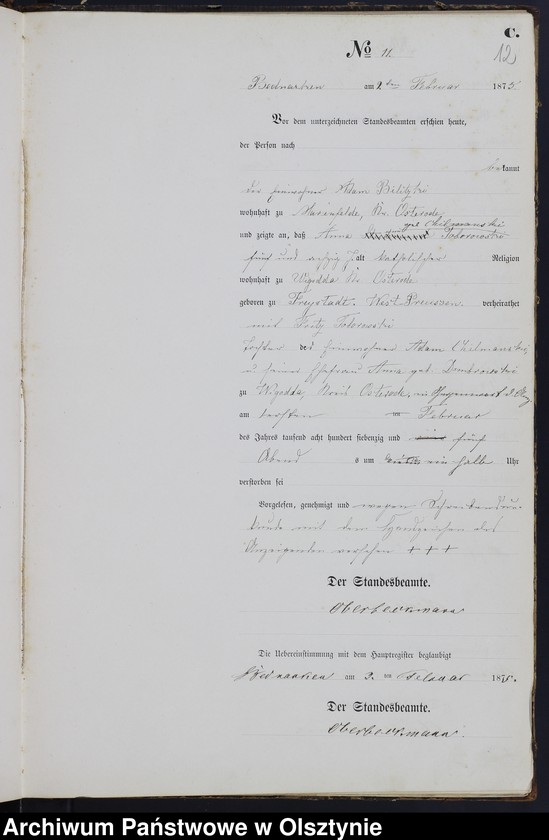 C.
12
No 11
Bednarken am 2ten Februar 1875
Vor dem unterzeichneten Standesbeamten erschien heute,
der Person nach
bekannt
der Einwohner Adam Bilitzki
wohnhaft zu Marienfelde, Kr. Osterode
geb Chilmanski
und zeigte an, daß Anna Todorowski
fünf und achzig J. alt katholischer Religion
wohnhaft zu Wigodda Kr Osterode
geboren zu Freystadt. West Preussen. verheirathet
mit Fritz Todorowski
Tochter des Einwohner Adam Chilmanski,
u seiner Ehefrau Anna geb
zu Wigodda, Kreis Osterode, in Gegenwart d.
am ersten ten Februar
des Jahres tausend acht hundert siebenzig und fünf
Abend s um ein halb Uhr
verstorben sei
Vorgelesen, genehmigt und wegen Schreibensun-
kunde mit den Handzeichen des
Anzeigenden versehen + + +
Der Standesbeamte.
Oberbeckmann
Die Uebereinstimmung mit dem Hauptregister beglaubigt
Bednarken am 2. ten Februar 1875.
Der Standesbeamte.
Oberbeckmann.
Archiwum Państwowe w Olsztynie